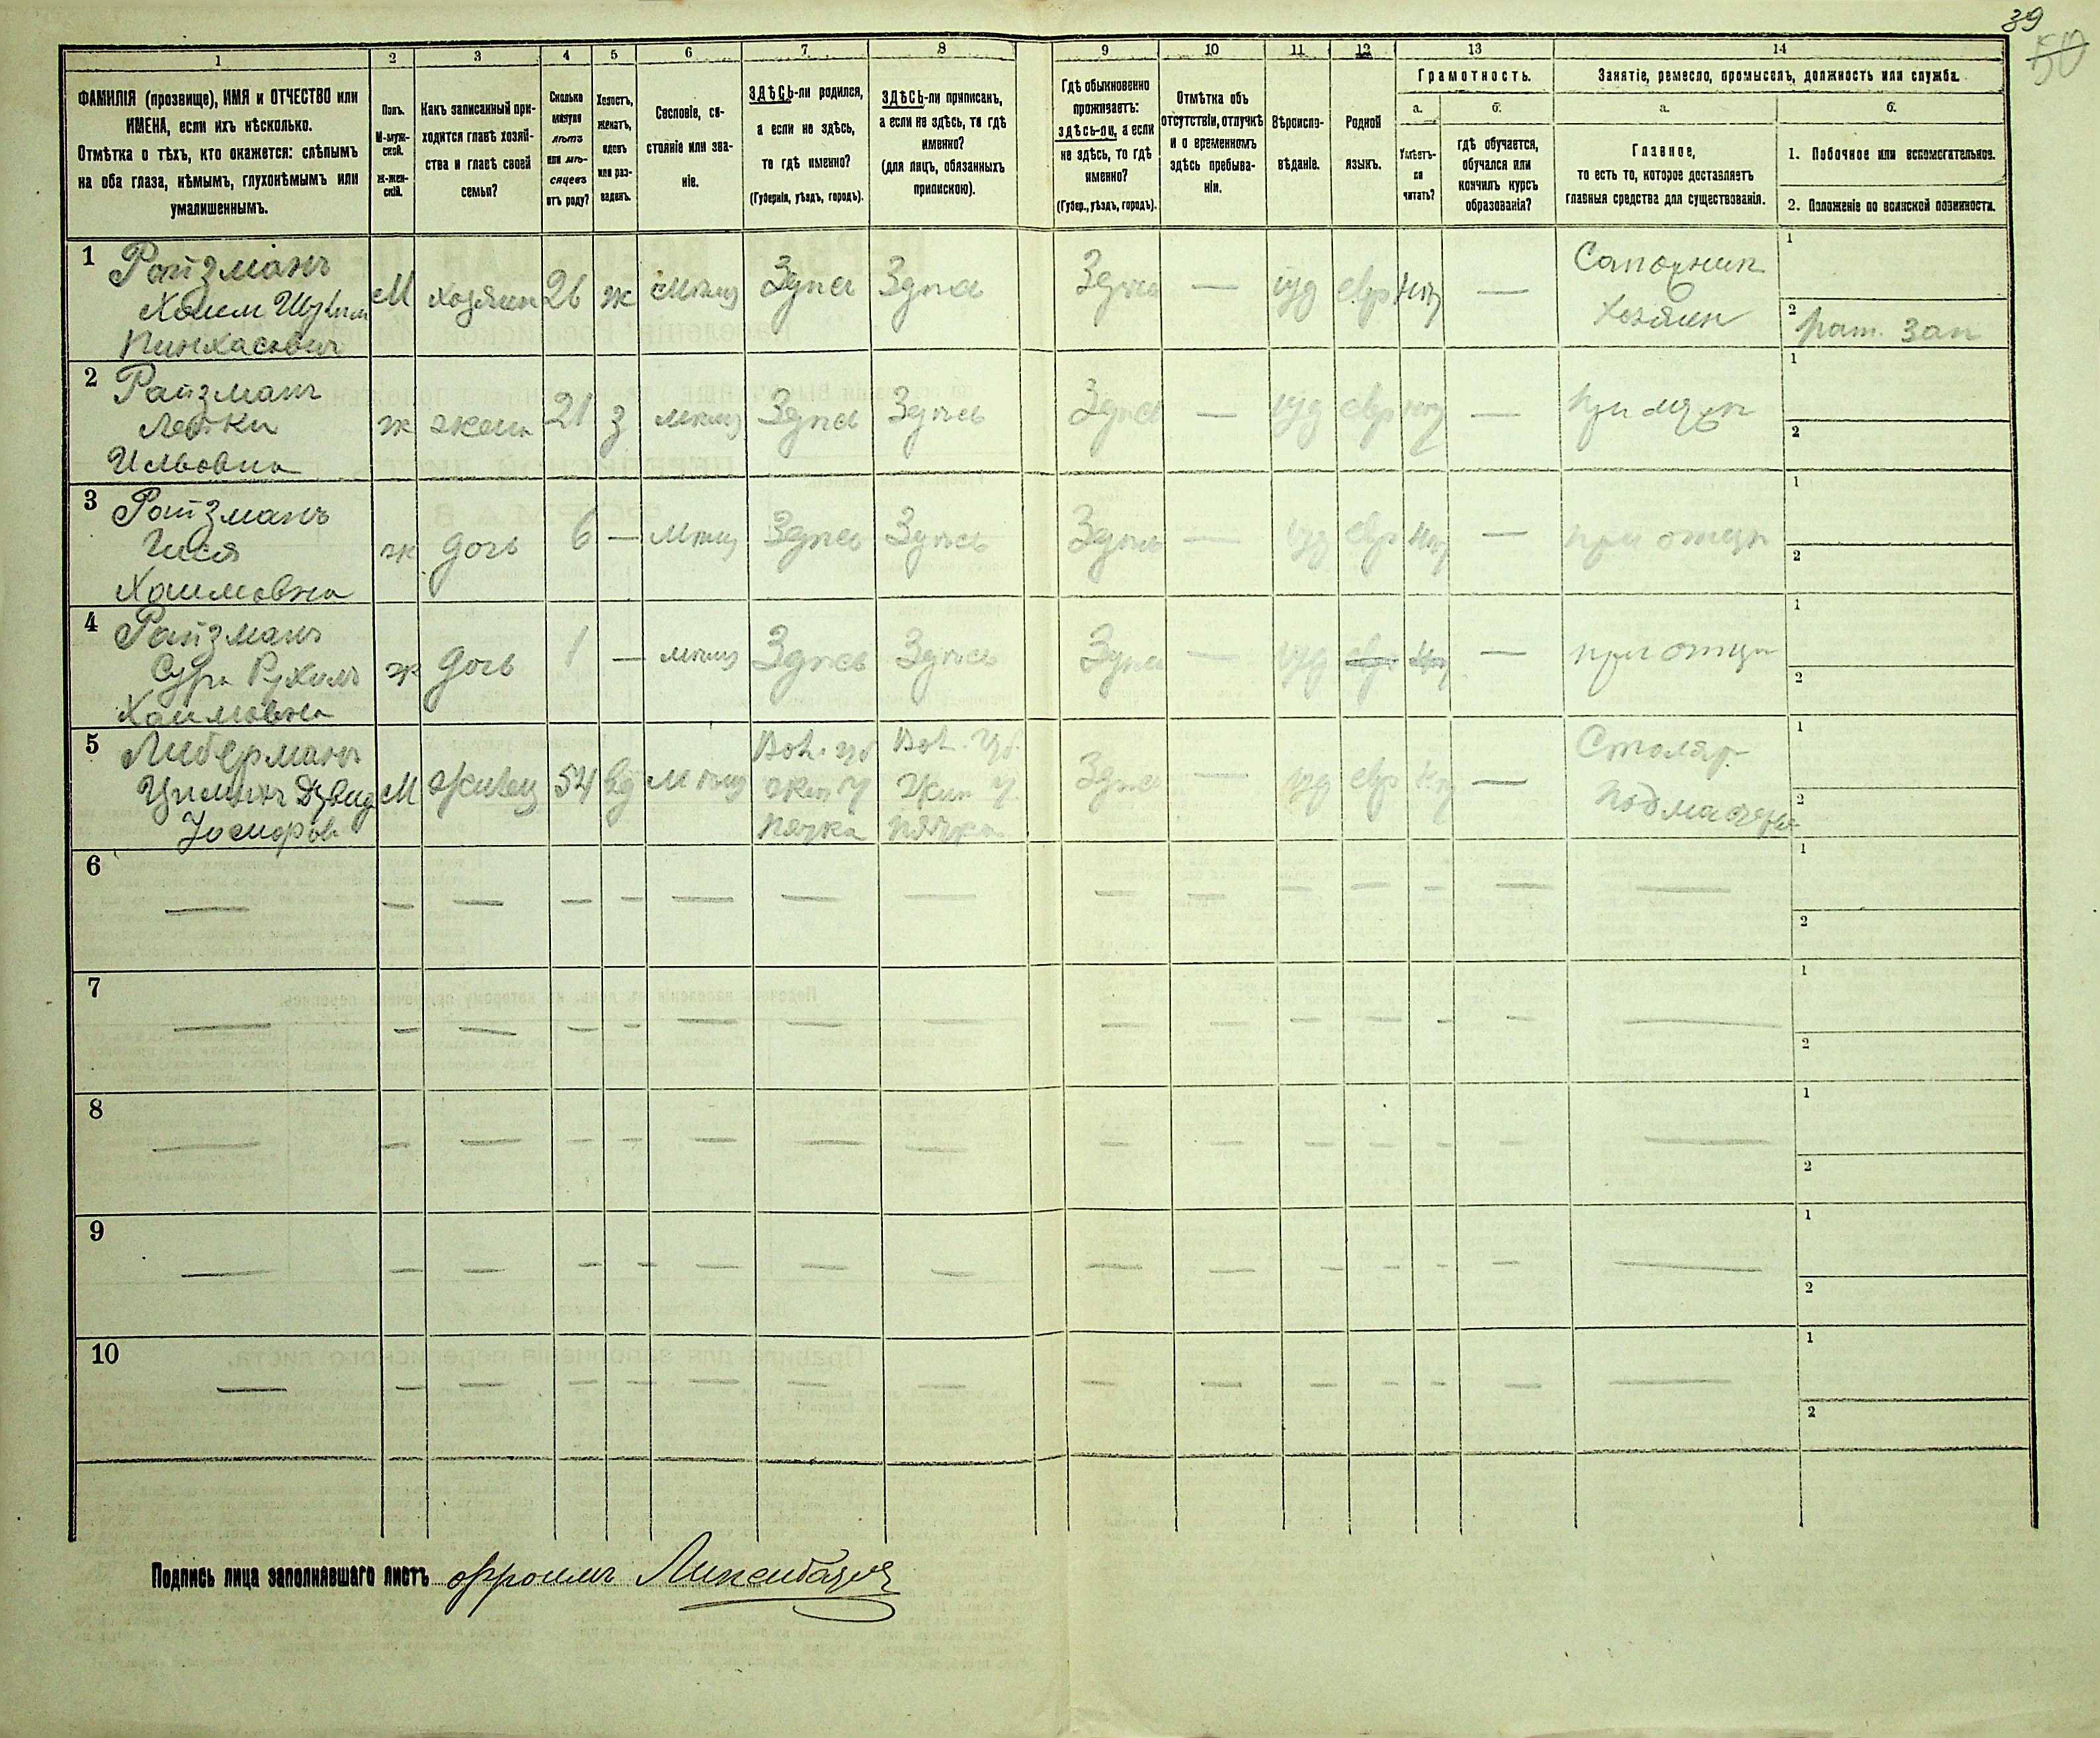 39
50
1
2
3
4
5
6
7
8
9
10
11
12
13
14
ФАМИЛІЯ (прозвище), ИМЯ и ОТЧЕСТВО или
ИМЕНА, если ихъ нѣсколько.
Отмѣтка о тѣхъ, кто окажется: слѣпымъ
на оба глаза, нѣмымъ, глухонѣмымъ или
умалишеннымъ.
Полъ.
М-муж-
ской.
Ж-жен-
скій.
Какъ записанный при-
ходится главѣ хозяй-
ства и главѣ своей
семьи?
Сколько
минуло
лѣтъ
или мѣ-
сяцевъ
отъ роду?
Холостъ,
женатъ,
вдовъ
или раз-
веденъ.
Сословіе, со-
стояніе или зва-
ніе.
ЗДѢСЬ-ли родился,
а если не здѣсь,
то гдѣ именно?
(Губернія, уѣздъ, городъ).
ЗДѢСЬ-ли приписанъ,
а если не здѣсь, то гдѣ
именно?
(для лицъ, обязанныхъ
припискою).
Гдѣ обыкновенно
проживаетъ:
здѣсь-ли, а если
не здѣсь, то гдѣ
именно?
(Губер., уѣздъ, городъ).
Отмѣтка объ
отсутствіи, отлучкѣ
и о временномъ
здѣсь пребыва-
ніи.
Вѣроиспо-
вѣданіе.
Родной
языкъ.
Грамотность.
а.
б.
Умѣетъ-
ли
читать?
гдѣ обучается,
обучался или
кончилъ курсъ
образованія?
Занятіе, ремесло, промыселъ, должность или служба.
а.
б.
Главное,
то есть то, которое доставляетъ
главныя средства для существованія.
1. Побочное или вспомогательное.
2. Положеніе по воинской повинности.
1 Райзманъ
Хаим
Пинхасович
М хозяин 26 ж мѣщ Здѣсь Здѣсь Здѣсь — іуд евр — Сапожник
хозяин
1
2 рат. зап
2 Райзманъ
ж жена 21 з мѣщ Здѣсь Здѣсь Здѣсь — іуд евр — при мужѣ
1
2
3 Райзманъ
Хаимовна
ж дочь 6 — мѣщ Здѣсь Здѣсь Здѣсь — іуд евр — при отцѣ
1
2
4 Райзманъ
Сура Рухель
Хаимовна
ж дочь 1 — мѣщ Здѣсь Здѣсь Здѣсь — іуд евр — при отцѣ
1
2
5 Либерманъ
М жилец 54 вд мѣщ
Вол. губ
Жит у
Пятка
Вол. губ.
Жит у.
Пятка
Здѣсь — іуд евр — Столяр
подмастер
1
2
6 — — — — — — — — — — — — — — —
1
2
7 — — — — — — — — — — — — — — —
1
2
8 — — — — — — — — — — — — — — —
1
2
9 — — — — — — — — — — — — — — —
1
2
10 — — — — — — — — — — — — — — —
1
2
Подпись лица заполнявшаго листъ